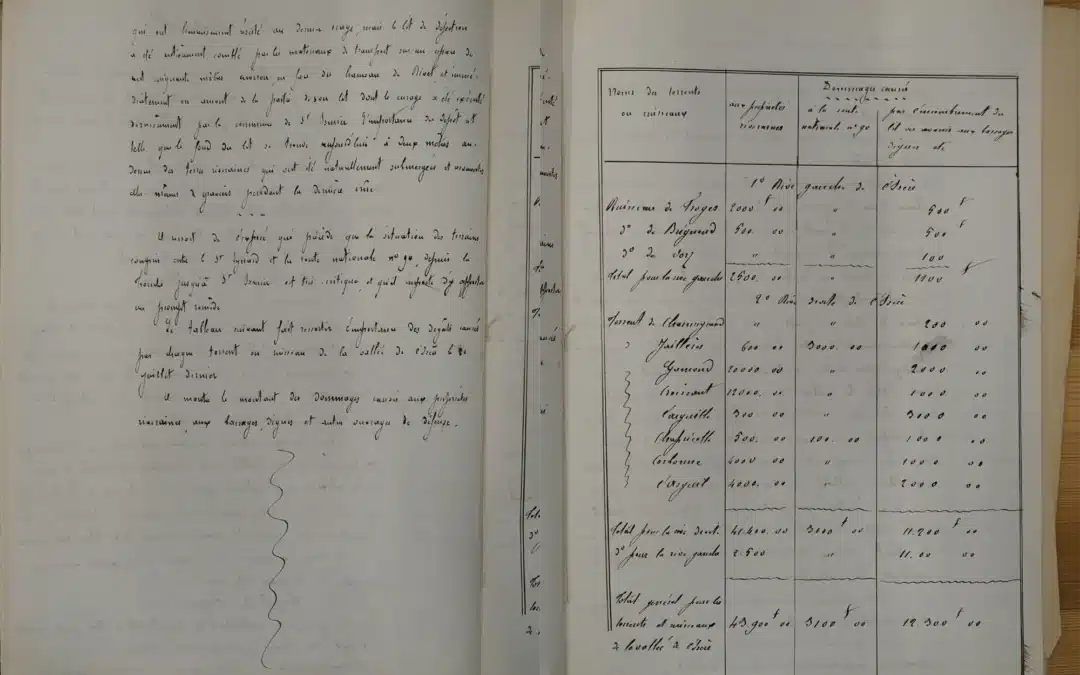 qui ont heureusement résisté au dernier orage, mais le lit de déjection
a été entièrement comblé par les matériaux de transport sur un espace de
cent cinquante mètres environ en face du hameau de et immé-
diatement en amont de la partie de son lit dont le curage a été exécuté
dernièrement par la commune de St Ismier. L'importance du dépôt est
telle que le fond du lit se trouve aujourd'hui à deux mètres au-
dessus des terres riveraines qui ont été naturellement submergées et recouvertes
elles mêmes de graviers pendant la dernière crue
Il ressort de l'exposé qui précède que la situation des terrains
compris entre le St Eynard et la route nationale no 90, depuis la
Tronche jusqu'à St Ismier est très critique, et qu'il importe d'y apporter
un prompt remède
Le tableau suivant fait ressortir l'importance des dégâts causés
par chaque torrent ou ruisseau de la vallée de l'Isère le
juillet dernier
Il montre le montant des dommages causés aux propriétés
riveraines, aux barrages, digues et autres ouvrages de défense.
Noms des torrents ou ruisseaux
Dommages causés
aux propriétés riveraines
à la route nationale no 90
par l'encombrement du lit ou avaries aux barrages digues etc
1o Rive gauche de l'Isère
Ruisseau de Froges 2000 f 00 " 500 f
do de Brignoud 500. 00 " 500 f
do de " " 100
Total pour la rive gauche 2500. 00 " 1100 f
2o Rive droite de l'Isère
Torrent de " " 200 00
" Jaillières 600 00 3000. 00 1000 00
Gamond 20000 00 " 2000 00
Croissant 12000. 00 " 1000 00
300 00 " 3000 00
500. 00 100. 00 1000 00
Corbonne 4000 00 " 1000 00
4000. 00 " 2000 00
Total pour la rive droite 41.400. 00 3100 f 00 11.200 f 00
do pour la rive gauche 2.500 " 11.00 00
Total général pour les
torrents et ruisseaux 43.900 f 00 3100 f 00 12300 f 00
de la vallée de l'Isère